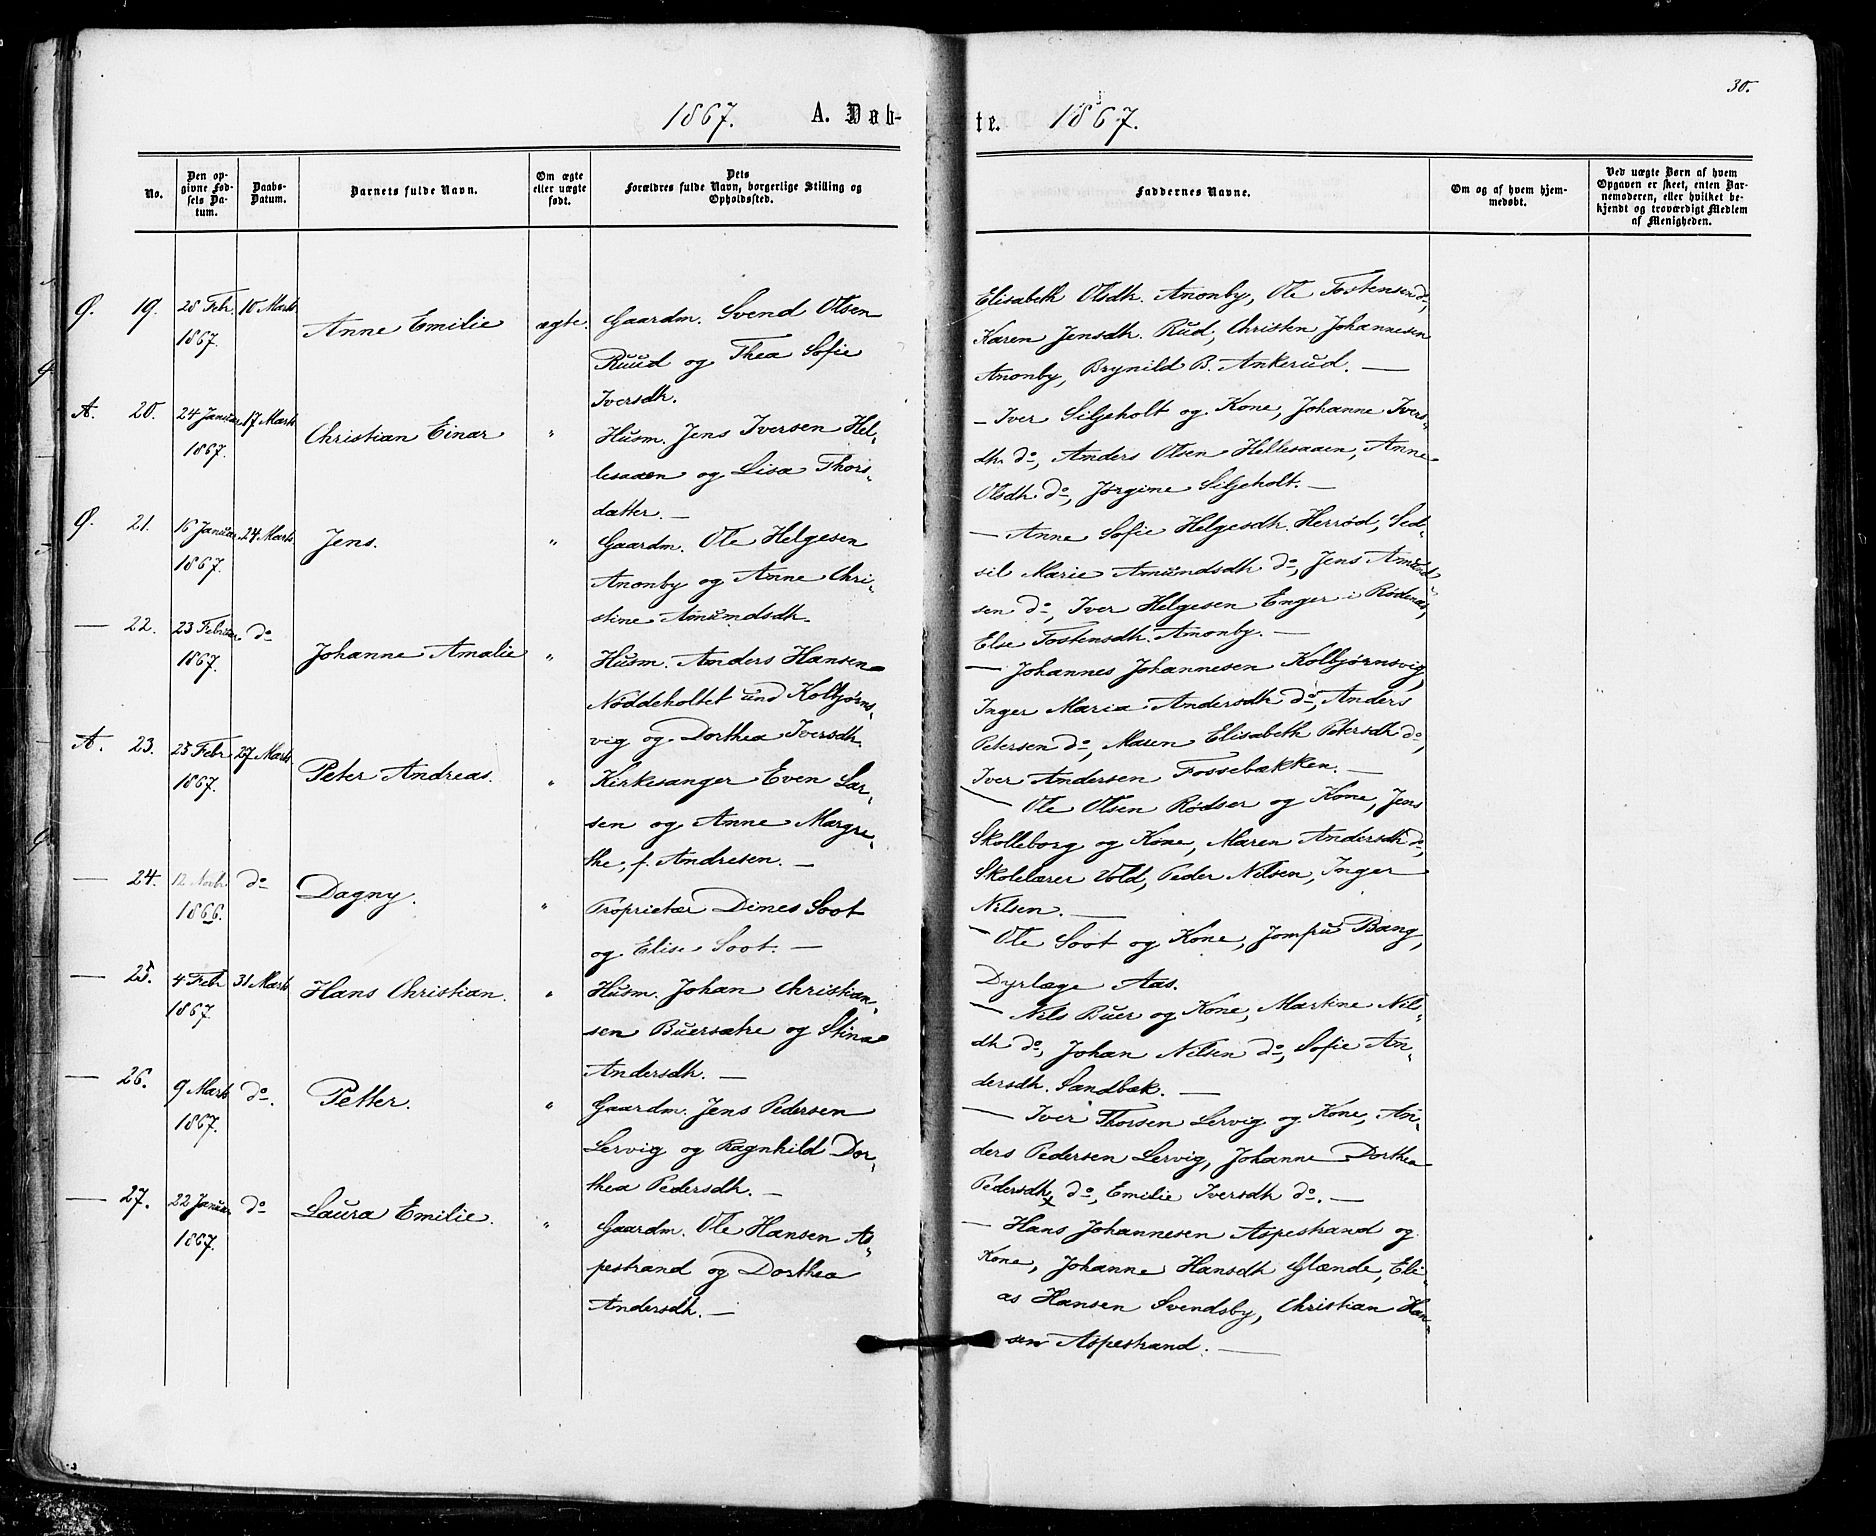 30.
1867. A. Døb-
te. 1867.
No.
Den op-
givne Fød-
sels Da-
tum.
Daabs-
Datum.
Barnets fulde Navn.
Om ægte
eller uægte
født.
Dets
Forældres fulde Navn, borgerlige Stilling og
Opholdssted.
Faddernes Navne.
Om og af hvem hjem-
medøbt.
Ved uægte Børn af hvem
Opgaven er skeet, enten Bar-
nemoderen, eller hvilket be-
kjendt og troværdigt Medlem
af Menigheden.
Ø. 19. 28 Febr 1867. 10 Marts Anne Emilie ægte.
Gaardm. Svend Olsen
Ruud og Thea Sofie
Iversdtr.
Elisabeth Olsdtr. Anonby, Ole Tostensen do,
Karen Jensdtr. Rud, Christen Johannesen
Anonby, Brynild B. Ankerud. —
A. 20. 24 Januar 1867. 17 Marts Christian Einar "
Husm. Jens Iversen Hel-
lesaaen og Lisa Thors-
datter. —
— Iver Siljeholt og Kone, Johanne Ivers-
dtr. do, Anders Olsen Hellesaaen, Anne
Olsdtr do, Jørgine Siljeholt. —
Ø. 21. 16 Januar 1867. 24 Marts Jens. "
Gaardm. Ole Helgesen
Anonby og Anne Chri-
stine Amundsdtr.
— Anne Sofie Helgesdtr. Herrød, Sed-
sil Marie Amundsdtr do, Jens Amund-
sen do, Iver Helgesen Enger i Rødenæs,
Else Tostensdtr. Anonby. —
— 22. 23 Februar 1867. do Johanne Amalie "
Husm. Anders Hansen
Nøddeholtet und Kolbjørns-
vig og Dorthea Iversdtr.
— Johannes Johannesen Kolbjørnsvig,
Inger Maria Andersdtr do, Anders
Petersen do, Maren Elisabeth Petersdtr do,
Iver Andersen Fossebækken. —
A. 23. 25 Febr 1867. 27 Marts Peter Andreas. "
Kirkesanger Even Lar-
sen og Anne Margre-
the, f. Andresen. —
— Ole Olsen Rødser og Kone, Jens
Skolleborg og Kone, Maren Andersdtr do,
Skolelærer Vold, Peder Nilsen, Inger
Nilsen. —
— 24. 12 Novbr 1866. do Dagny. "
Proprietær Dines Soot
og Elise Soot. —
— Ole Soot og Kone, Jomfru Bang,
Dyrlæge Aas.
— 25. 4 Febr 1867. 31 Marts Hans Christian. "
Husm. Johan Christian-
sen Buersætre og Stina
Andersdtr. —
— Nils Buer og Kone, Martine Nils-
dtr do, Johan Nilsen do, Sofie An-
dersdtr. Sandbæk. —
— 26. 9 Marts 1867. do. Petter. "
Gaardm. Jens Pedersen
Lervig og Ragnhild Dor-
thea Pedersdtr. —
— Iver Thorsen Lervig og Kone, An-
ders Pedersen Lervig, Johanne Dorthea
Pedersdtr do, Emilie Iversdtr do. —
— 27. 22 Januar 1867. do Laura Emilie. "
Gaardm. Ole Hansen As-
pestrand og Dorthea
Andersdtr. —
— Hans Johannesen Aspestrand og
Kone, Johanne Hansdtr Glænde, Eli-
as Hansen Svendsby, Christian Han-
sen Aspestrand. —